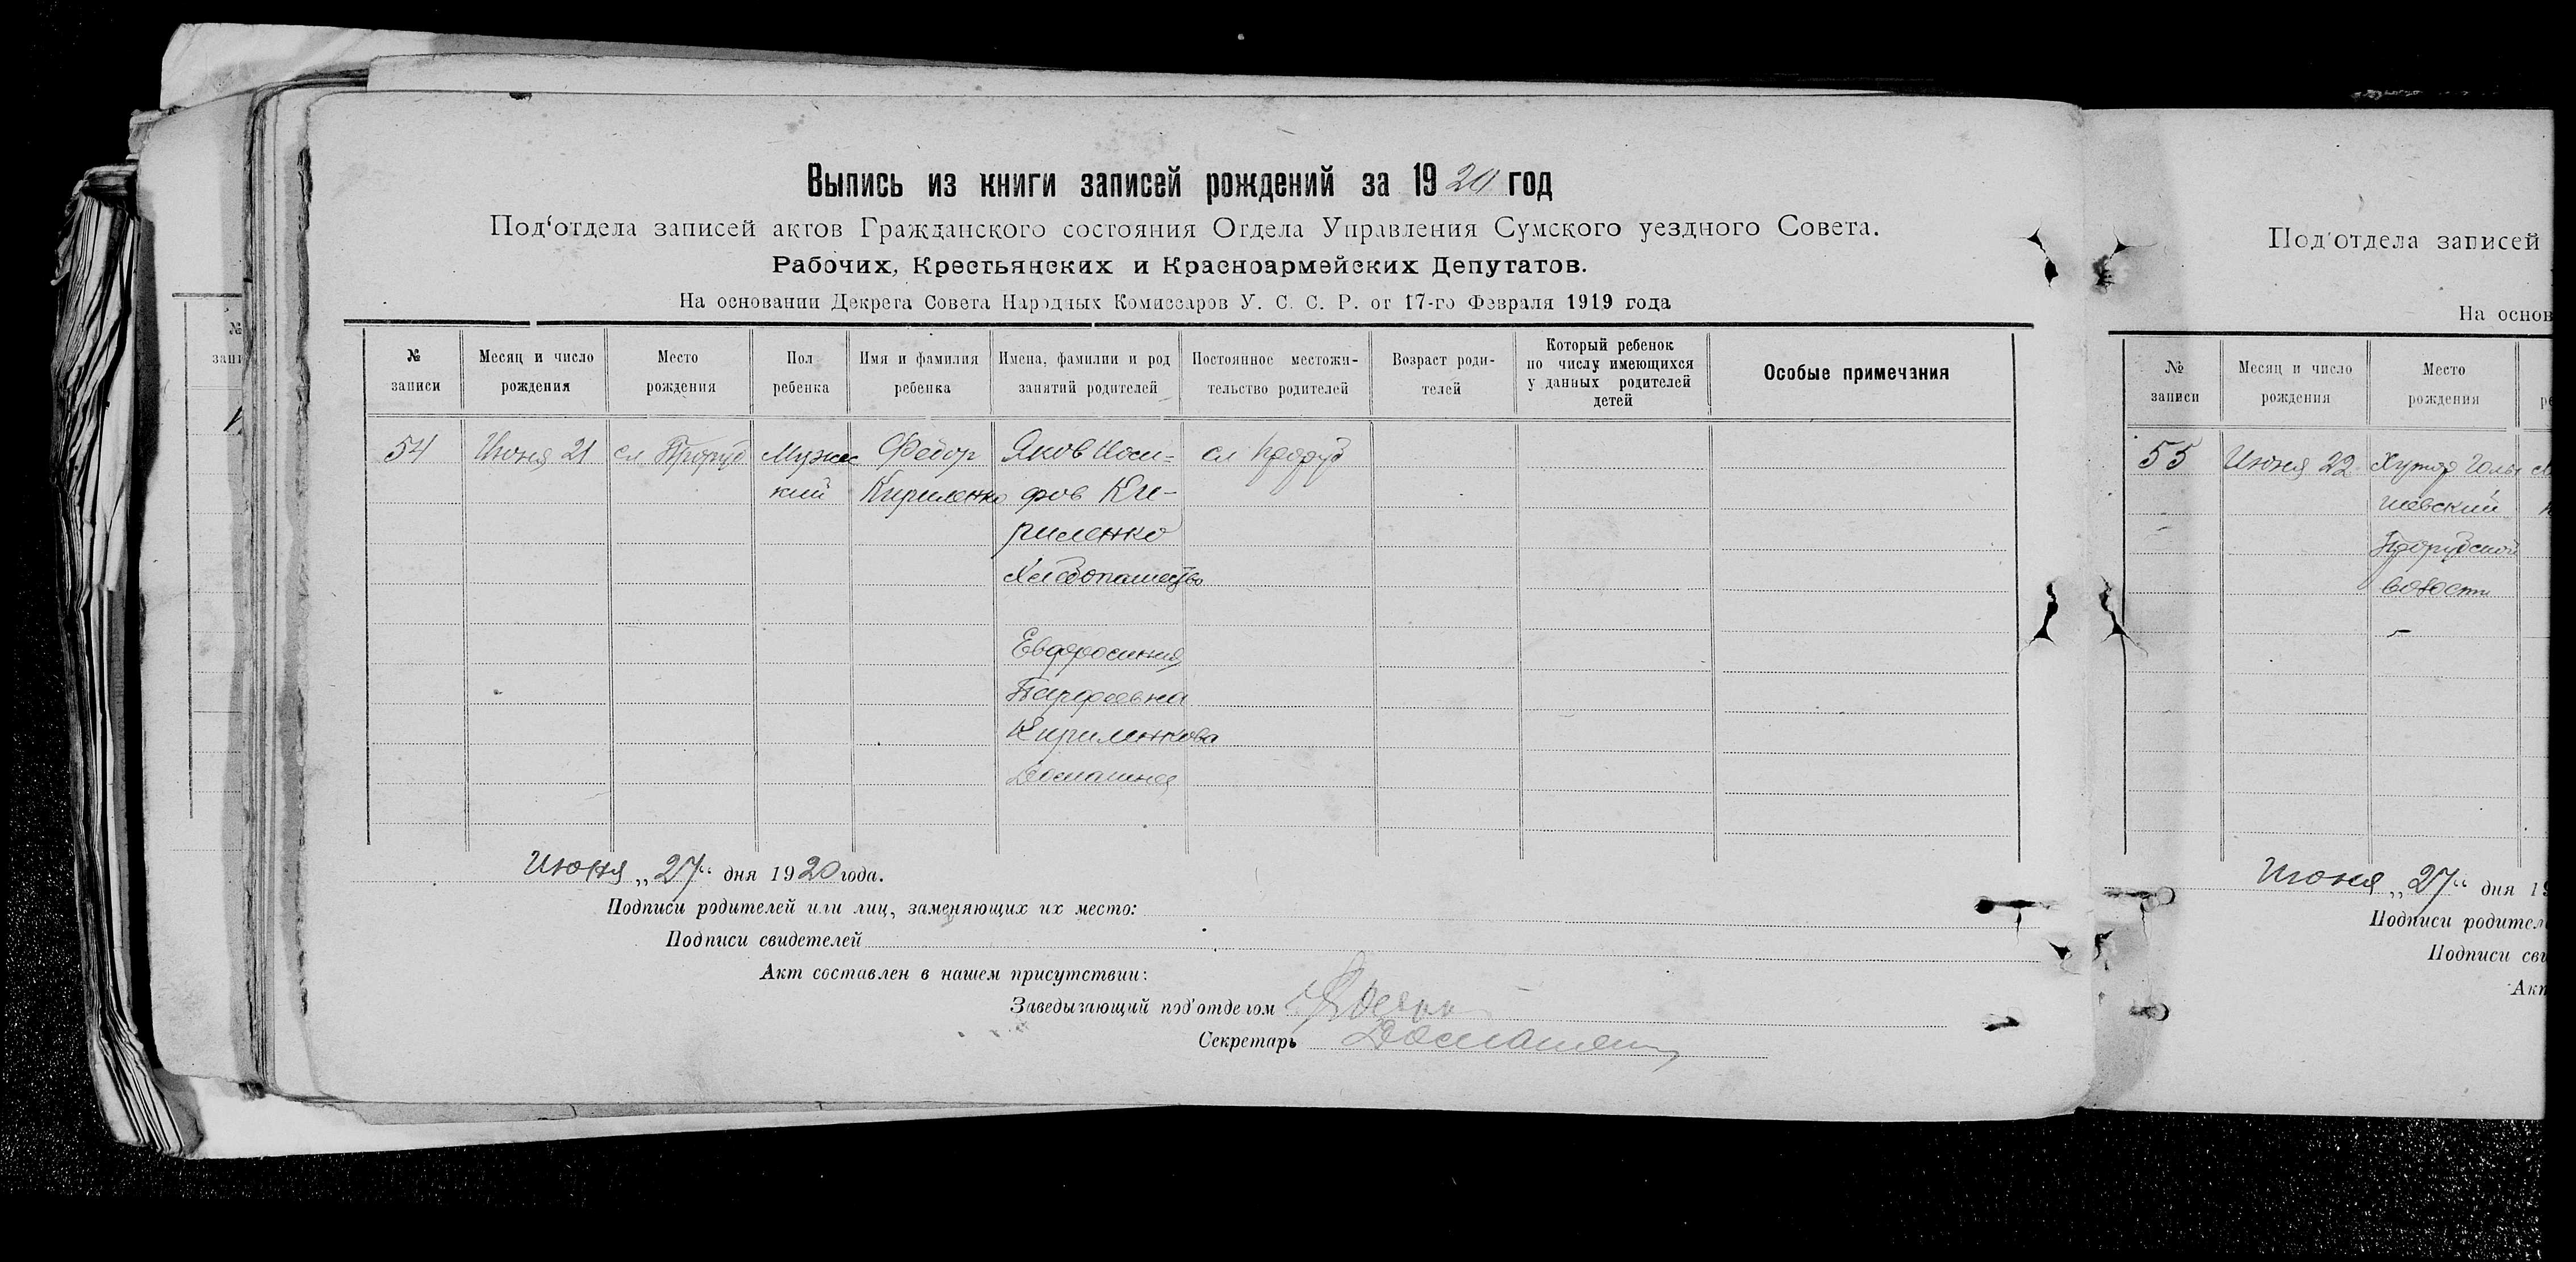 Выпись из книги записей рождений за 1920 год
Под'отдела записей актов Гражданского состояния Отдела Управления Сумского уездного Совета.
Рабочих, Крестьянских и Красноармейских Депутатов.
На основании Декрета Совета Народных Комиссаров У. С. С. Р. от 17-го Февраля 1919 года
№ записи
Месяц и число рождения
Место рождения
Пол ребенка
Имя и фамилия ребенка
Имена, фамилии и род занятий родителей
Постоянное местожи-тельство родителей
Возраст роди-телей
Который ребенок по числу имеющихся у данных родителей детей
Особые примечания
54
Июня 21
сл. Проруб
Мужс
кий
Федор
Кириленко
Яков Иоси=
фов Ки-
риленко
Хлебопашество
Евфросиния
Парфоевна
Кириленкова
Домашнее
сл Проруб
Июня „27“ дня 1920 года.
Подписи родителей или лиц, заменяющих их место:
Подписи свидетелей
Акт составлен в нашем присутствии:
Заведывающий под'отделом
Секретарь
№
запи
Под'отдела записей
На основ
№ записи
Месяц и число рождения
Место рождения
55
Июня 22
Хутор
Прорубской
волости
Июня „27“ дня 19
Подписи родител
Подписи сви
Акт